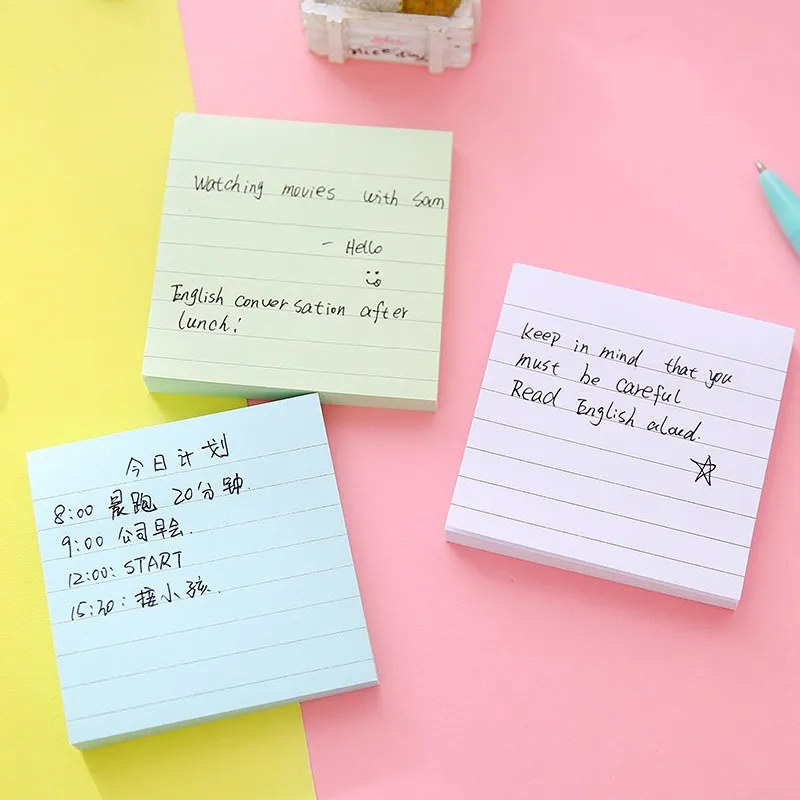 Nice day
Watching movies with Sam
- Hello
English conversation after
lunch:
keep in mind that you
must be careful
Read English aloud.
今日计划
8:00 晨跑 20分钟.
9:00 公司早会.
12:00: START
15:30: 接小孩.